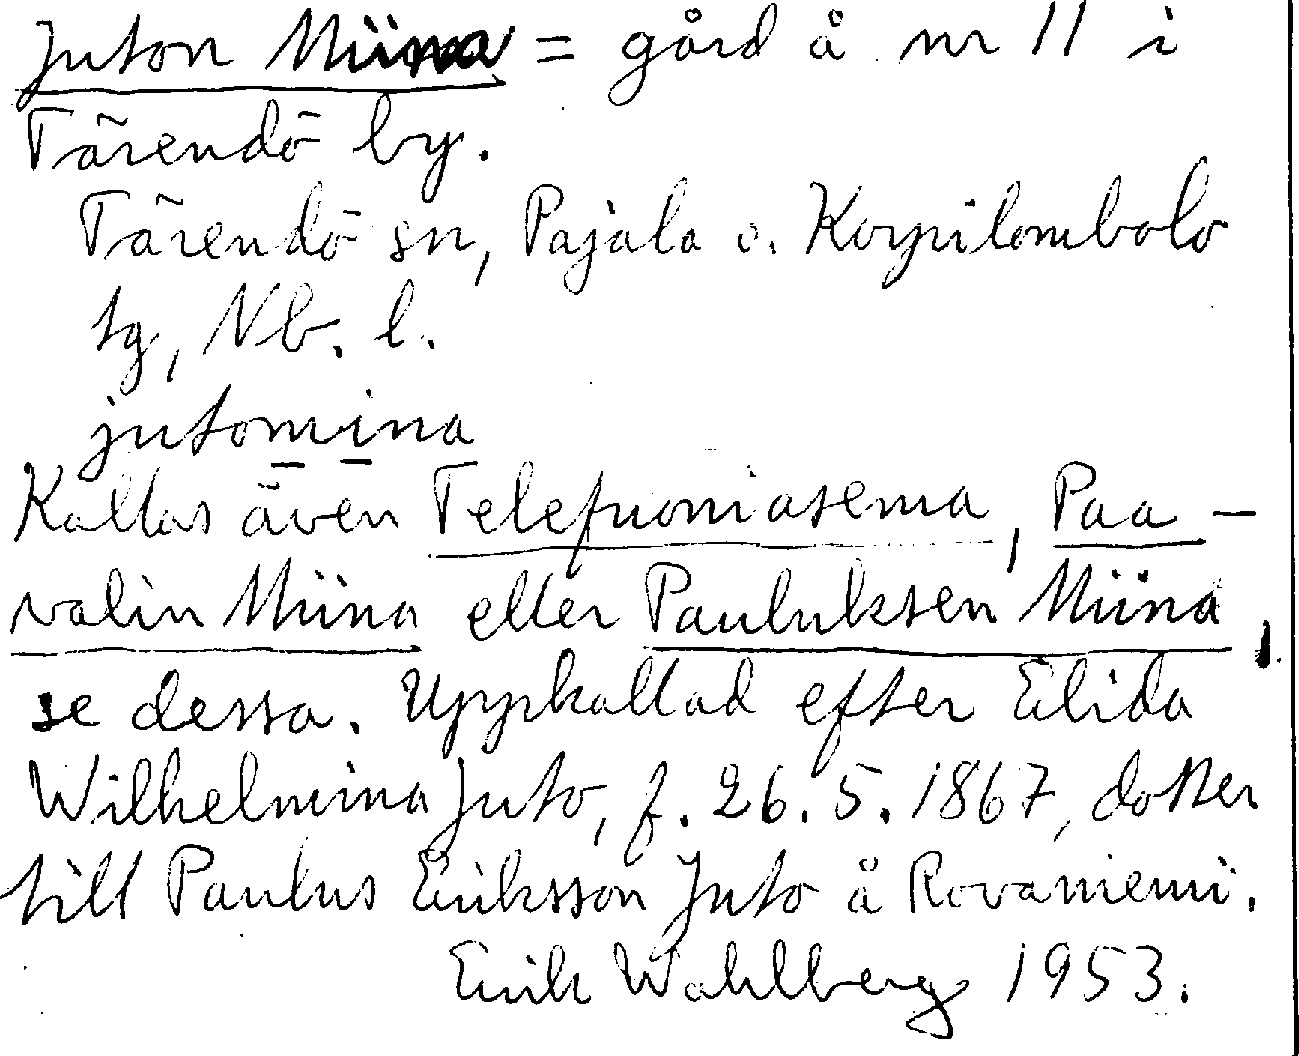 Juton Miina = gård å nr 11 i
Tärendö by.
Tärendö sn, Pajala o. Korpilombolo
tg, Nb. l.
jutomina
Kallas även Telefuoniasema, Paa-
valin Miina eller Pauluksen Miina,
se dessa. Uppkallad efter Elida
Wilhelmina Juto, f. 26.5.1867, dotter
till Paulus Eriksson Juto å Rovaniemi.
Erik Wahlberg 1953.